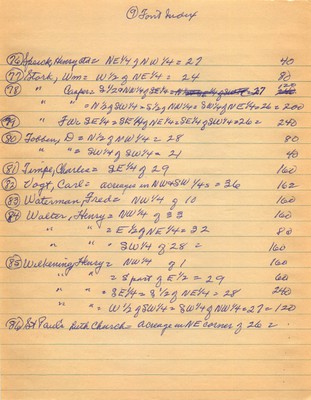 ⑨ Font Index
(76) Henry = NE¼ of NW¼ = 27 40
(77) Stork, Wm = W½ of NE¼ = 24 80
(78) " Casper = S½ of NW¼ of SE¼ = 27
" " = N½ of SW¼ = S½ of NW¼ = SW¼ of NE¼ = 26 = 200
(79) " F Wm SE¼ = SE¼ of NE¼ = SE¼ of SW¼ = 26 = 240
(80) D = N½ of NW¼ = 28 80
" = SW¼ of SW¼ = 21 40
(81) Timpe, Charles = SE¼ of 29 160
(82) Vogt, Carl = acreage in NW & SW ¼s = 36 162
(83) Waterman, Fred = NW¼ of 10 160
(84) Walter, Henry = NW¼ of 33 160
" " = E½ of NW¼ = 32 80
" " SW¼ of 28 = 160
(85) Wilkening Henry = NW¼ of 1 160
" " = S part of E½ = 29 60
" " = SE¼ = S½ of NE¼ = 28 240
" " = W½ of SW¼ = SW¼ of NW¼ = 27 = 120
(86) St Paul's Luth Church = acreage in NE corner of 26 =